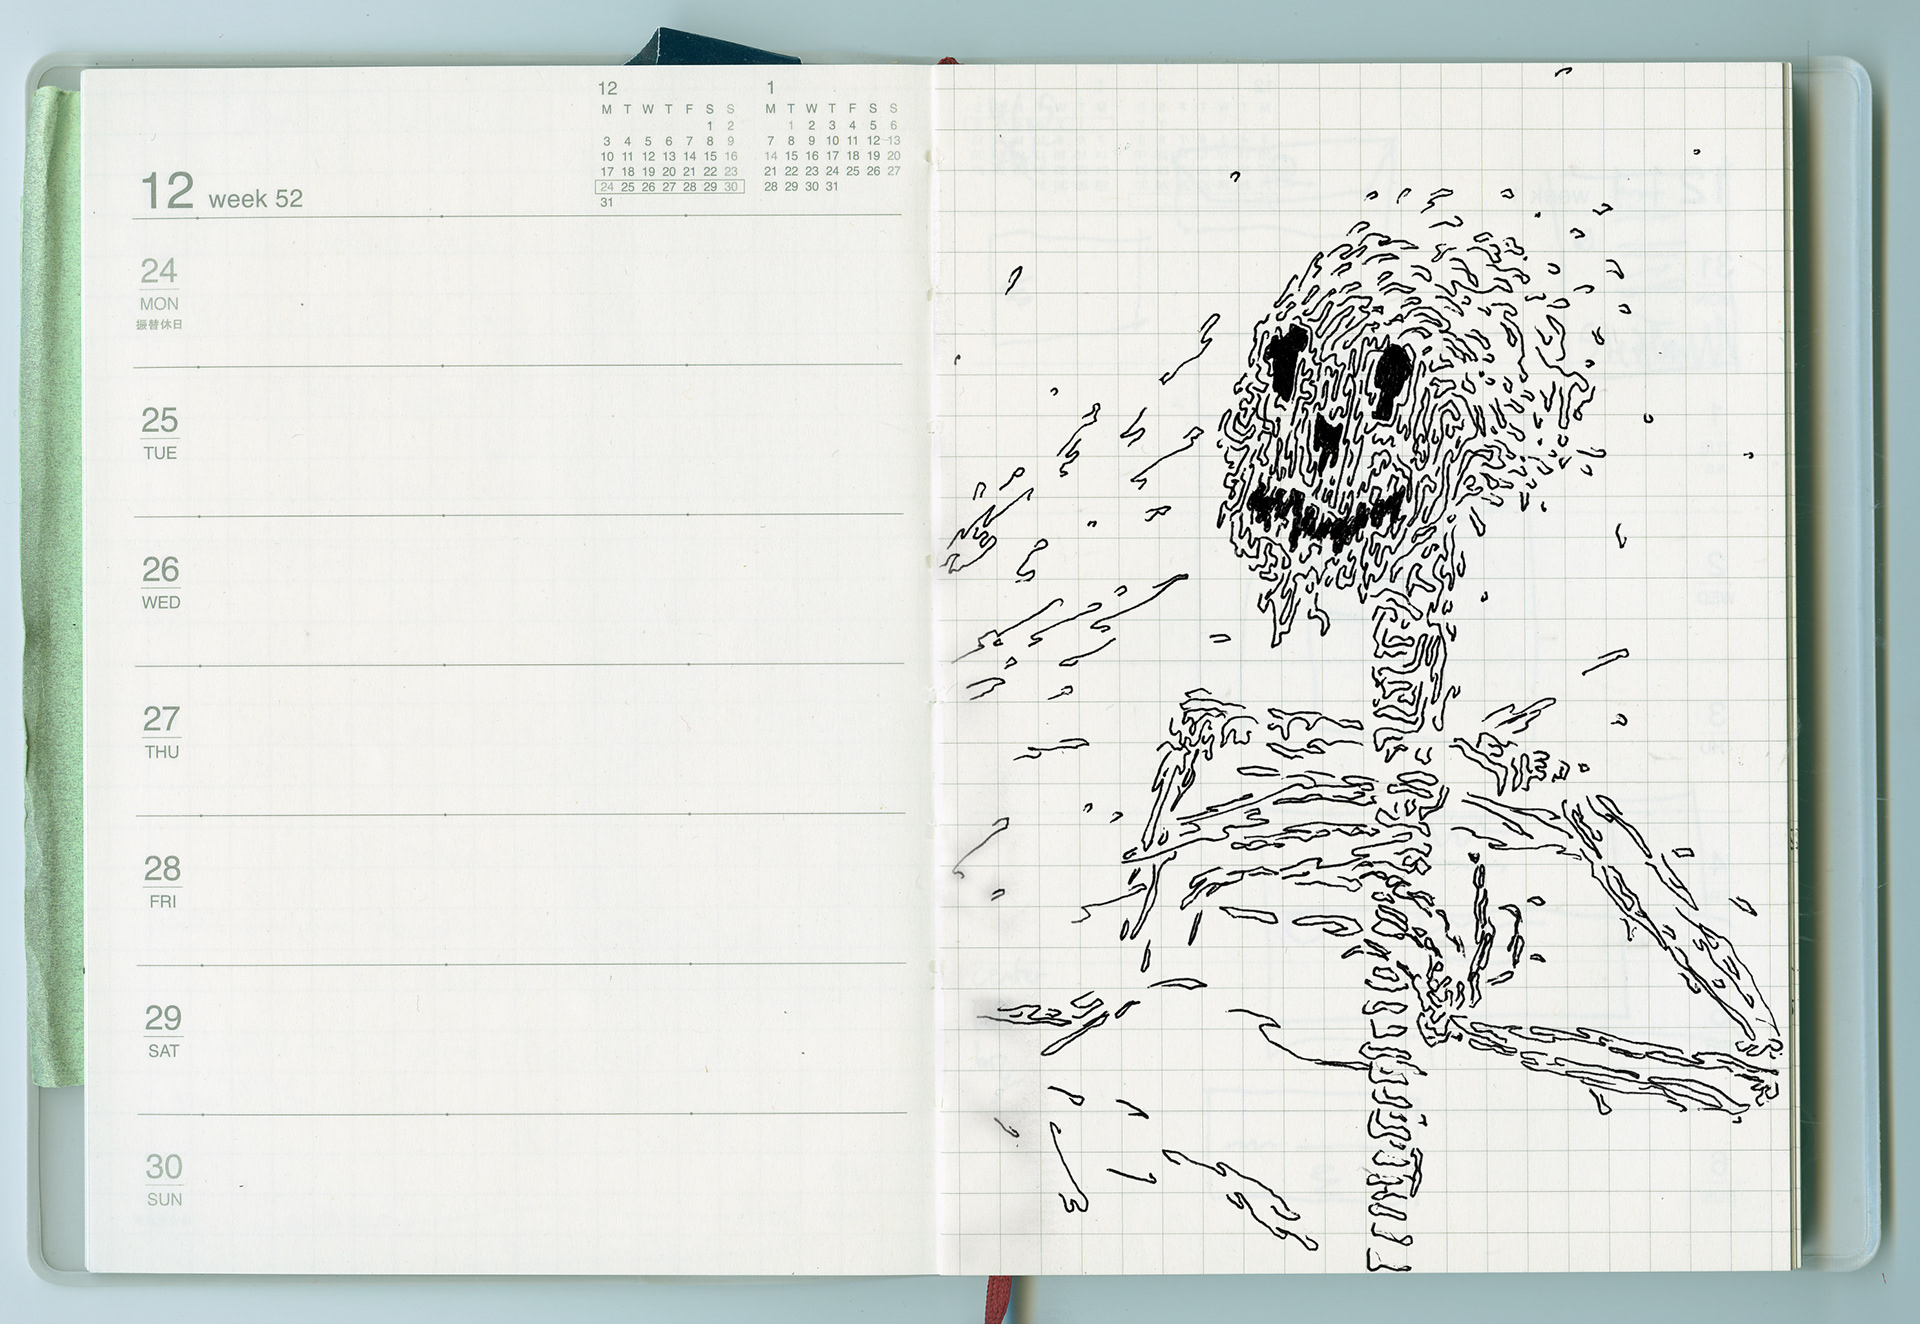 12
M T W T F S S
1 2
3 4 5 6 7 8 9
10 11 12 13 14 15 16
17 18 19 20 21 22 23
24 25 26 27 28 29 30
31
1
M T W T F S S
1 2 3 4 5 6
7 8 9 10 11 12 13
14 15 16 17 18 19 20
21 22 23 24 25 26 27
28 29 30 31
12 week 52
24
MON
振替休日
25
TUE
26
WED
27
THU
28
FRI
29
SAT
30
SUN